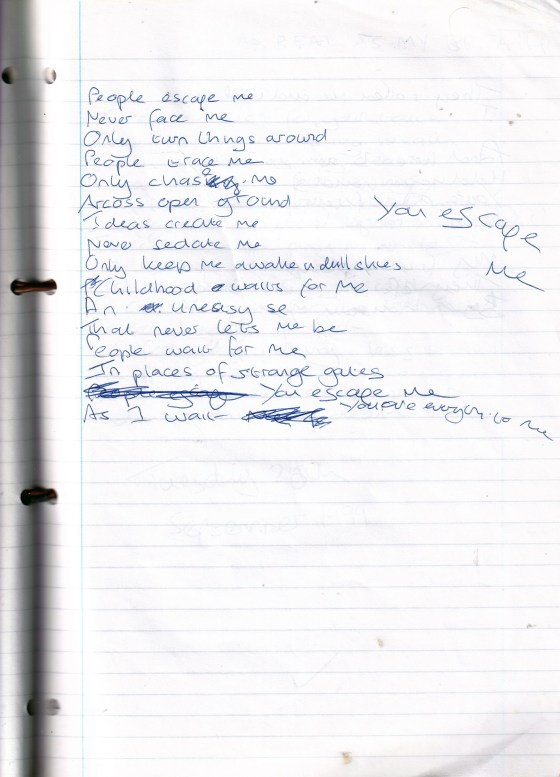 People escape me
Never face me
Only turn things around
People trace me
Only chase me
Arcoss open ground
Ideas create me
Never sedate me
Only keep me awake n dull skies
Childhood waits for me
An uneasy se
That never lets me be
People wait for me
In places of strange gates
You escape me
As I wait You are everything to me
You escape
Me